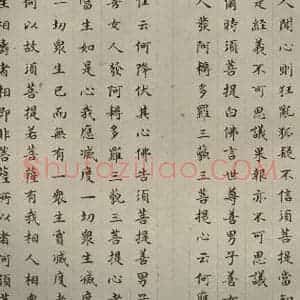 人聞心則狂亂狐疑不信須菩提當
是經義不可思議果報亦不可思議
爾時須菩提白佛言世尊善男子善
人發阿耨多羅三藐三菩提心云何應
住云何降伏其心佛告須菩提善男子
善女人發阿耨多羅三藐三菩提心者
當生如是心我應滅度一切衆生滅度
一切衆生已而無有一衆生實滅度者
何以故須菩提若菩薩有我相人相
生相壽者相即非菩薩所以者何須菩
Shufaziliao.COM